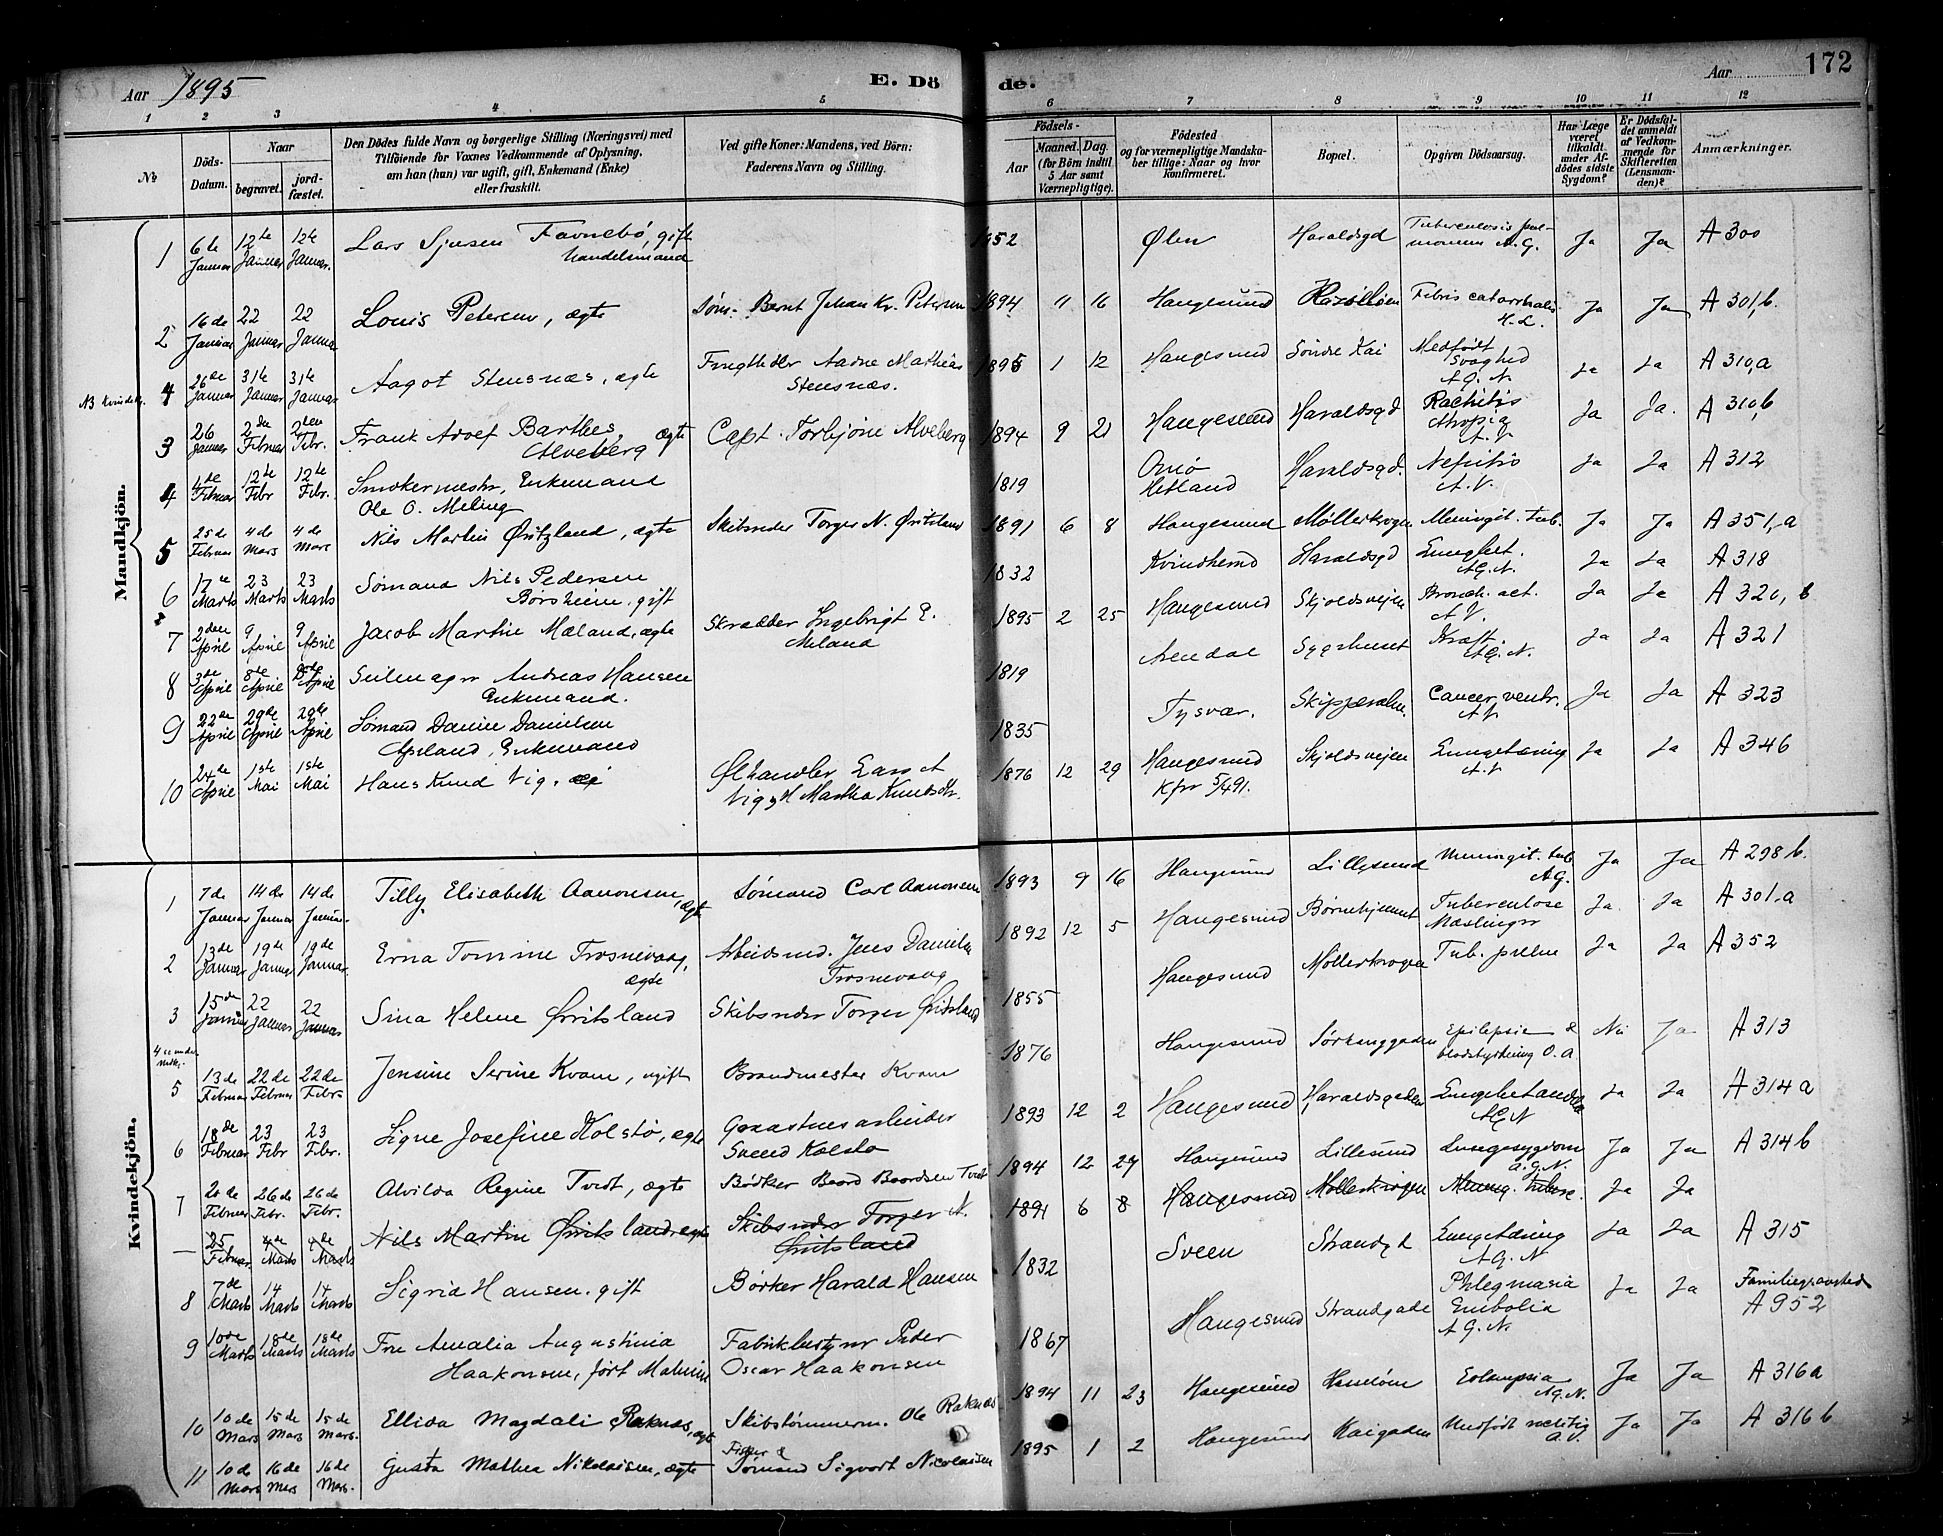 Aar 1895
E. Dö
de.
Aar
172
1 2 3 4 5 6 7 8 9 10 11 12
№
Döds-Datum.
Naar
begravet.
jord-fæstet.
Den Dödes fulde Navn og borgerlige Stilling (Næringsvei) med
Tilföiende for Voxnes Vedkommende af Oplysning,
om han (hun) var ugift, gift, Enkemand (Enke)
eller fraskilt.
Ved gifte Koner: Mandens, ved Börn:
Faderens Navn og Stilling.
Födsels-
Aar
Maaned. Dag.
(for Börn indtil
5 Aar samt
Værnepligtige).
Födested
og for værnepligtige Mandska-
ber tillige: Naar og hvor
konfirmeret.
Bopæl.
Opgiven Dödsaarsag.
Har Læge
været
tilkaldt
under Af-
dödes sidste
Sygdom?
Er Dödsfal-
det anmeldt
af Vedkom-
mende for
Skifteretten
(Lensman-
den)?
Anmærkninger.
Mandkjön.
1 6te Januar 12te Januar 12te Januar. Lars Sjursen Favnebö, gift Handelsmand 1852 Ølen Haraldsgd Tuberculosis pulmonum A.G. Ja Ja A 300
2 16de Januar 22 Januar 22 Januar Louis Petersen, ægte Döm. Bernt Johan Kr. Petersen 1894 11 16 Haugesund Febris catarrhalis H.L. Ja Ja A 301,b.
NB Kvindek. 4 26de Januar 31te Januar 31te Januar Aagot Stensnæs, ægte Aadne Mathias Stensnæs. 1895 1 12 Haugesund Söndre Kai Medfödt Svaghed A.G.N. Ja Ja A 310,a
3 26 Januar 2den Februar 2den Febr. Frank Adolf Barthes Alveberg ægte Capt. Torbjörn Alveberg 1894 9 21 Haugesund Haraldsgd Rachitis Atropia A.V. Ja Ja. A 310,b
4 4de Februar 12te Febr 12te Febr. Enkemand Ole O. Meling 1819 Hetland Haraldsgd. A.V. Ja Ja A 312
5 25de Februar 4de Mars 4de Mars Nils Martin Øritzland, ægte Skibsreder Torger N. Øritsland 1891 6 8 Haugesund Møllerkrogen Meningit. tub. Ja Ja A 351,a
6 17de Marts 23 Marts 23 Marts Sømand Nils Pedersen Børsheim. gift 1832 Kvindherred Haraldsgd A.G.N. Ja Ja A 318
7 2den April 9 April 9 April Jacob Martin Mæland, ægte Skrædder Ingebrigt E. Meland 1895 2 25 Haugesund Skjoldsvejen Bronch. act. A.V. Ja Ja A 320, b
8 3de April 8de April 8de April Seilmager Andreas Hansen Enkemand. 1819 Arendal Sygehuset Kræft. A.G.N. Ja Ja A 321
9 22de April 29de April 29de April Sømand Danien Danielsen Apeland, Enkemand 1835 Tysvær. Cancer ventr. A.V. Ja Ja A 323
10 24de April 1ste Mai 1ste Mai Hans Knud Vig. Ølhandler Vig, H Martha Knudsdtr. 1876 12 29 Haugesund Kfr 5/4 91. Skjoldsvejen Lungetæring A.V. Ja Ja A 346
Kvindekjön.
1 7de Januar 14de Januar 14de Januar Tilly Elisabeth Aanonsen, ægte Sømand Carl Aanonsen 1893 9 16 Haugesund Lillesund Meningit. tub. A.G. Ja Ja A 298 b.
2 13de Januar 19de Januar 19de Januar. Erna Tomine Trosnevaag, ægte Arbeidsmd. Jens Danielsen Trosnevaag 1892 12 5 Haugesund Børnehjemmet Tuberculose Mæslinger Ja Ja A 301,a
3 15de Januar 22 Januar 22 Januar Sina Helene Øritsland Skibsreder Torger Øritsland 1855 Haugesund Møllerkrogen Tub. pulm Ja Ja A 352
4 se under Mdk.
5 13de Februar 22de Februar 22de Febr. Jensine Serine Kvam, ugift Brandmester Kvam 1876 Haugesund Sørhauggaden Epilepsie & blodstyrtning O.A Nei Ja A 313
6 18de Februar 23 Febr 23 Febr. Signe Josefine Kolstø, ægte Svend Kolstø 1893 12 2 Haugesund Haraldsgaden Lungebetændelse A.G.N Ja Ja A 314 a
7 20de Februar 26de Febr. 26de Febr. Alvilda Regine Tvedt, ægte Bødker Baard Baardsen Tvedt 1894 12 27 Haugesund Lillesund Lungesygdom A.G.N. Ja Ja A 314 b
— 25 Februar 4de Marts 4de Marts Nils Martin Øritsland ægte Skibsreder Torger N. Øritsland 1891 6 8 Haugesund Møllerkrogen Mening. tuberc. Ja Ja
8 7de Marts 14 Marts 14 Marts Sigrid Hansen. gift Bødker Harald Hansen 1832 Sveen Strandgd Lungetæring A.G.N Ja Ja A 315
9 10de Marts 18de Marts 18de Marts Fru Amalia Augustinia Haakonsen, født Fabrikbestyrer Peder Oscar Haakonsen 1867 Haugesund Strandgade Phlegmasia Embolia A.G.N. Ja Ja Familiegravsted A 952
10 10de Mars 15de Mars 15de Mars. Ellida Magdali Raknes, ægte Skibstømmerm. Ole Raknes 1894 11 23 Haugesund Eclampsia A.G.N. Ja Ja A 316a
11 10de Mars 16de Mars 16de Mars. Gusta Mathea Nikolaisen, ægte Fisker & Sømand Sigvart Nicolaisen 1895 1 2 Haugesund Kaigaden Medfødt A.V. Ja Ja A 316 b